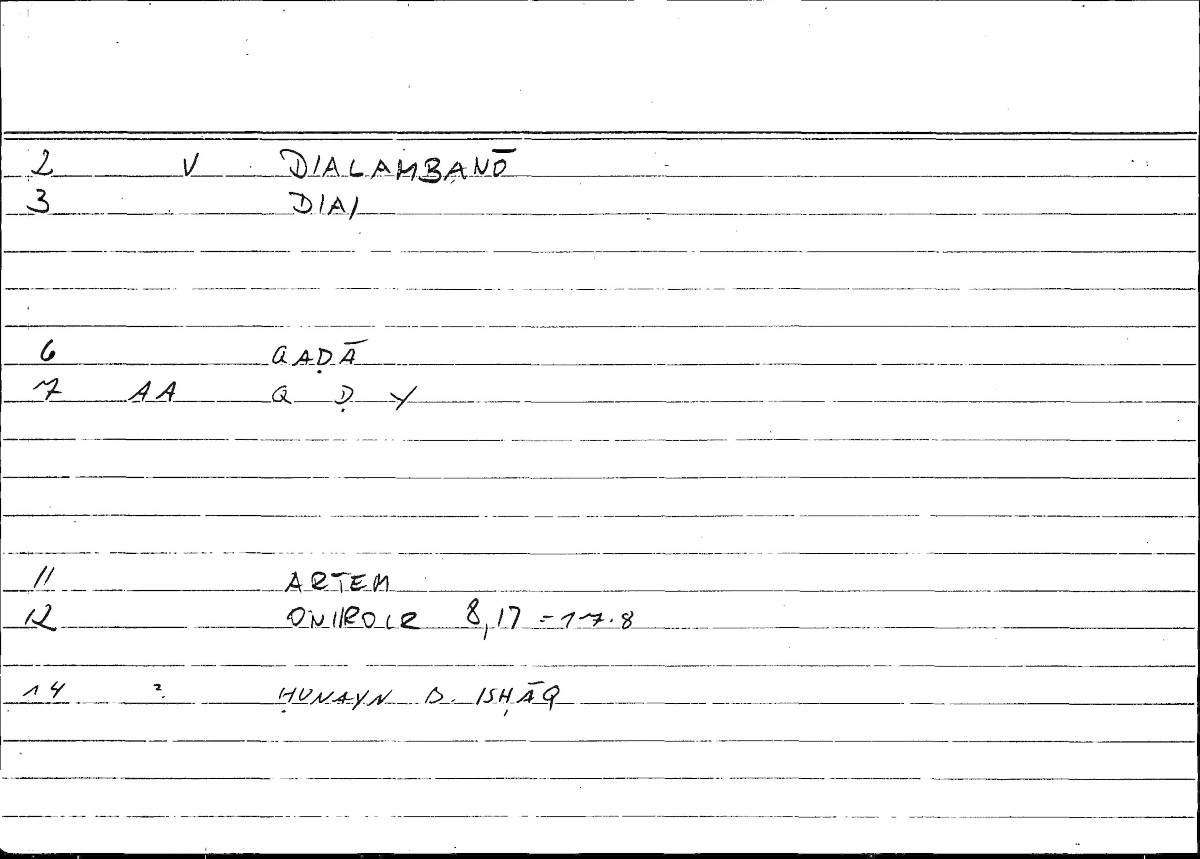 2 V DIALAMBANŌ
3 DIAI
6 QAḌĀ
7 AA Q Ḍ Y
11 ARTEM
12 ONIROCR 8,17 = 17.8
14 2 ḤUNAYN B. ISḤĀQ